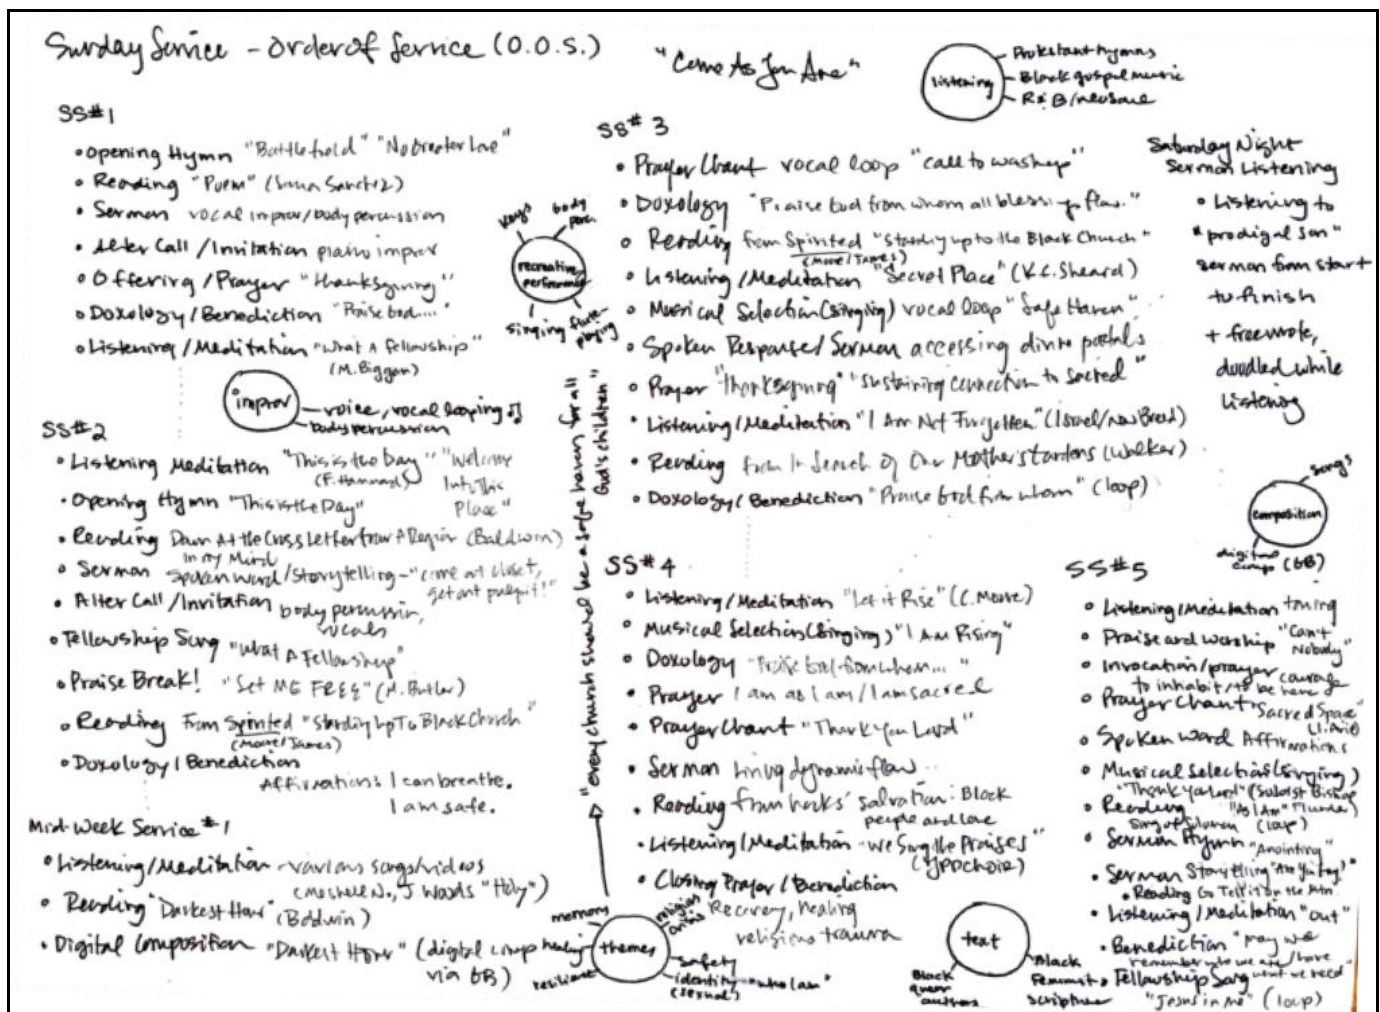 Sunday Service - Order of Service (O.O.S.)
"Come As You Are"
listening
Protestant hymns
Black gospel music
R&B/neosoul
SS#1
• Opening Hymn "Battlefield" "No Greater Love"
• Reading "Poem" (Sonia Sanchez)
• Sermon vocal improv/body percussion
• Alter Call/Invitation piano improv
• Offering/Prayer "thanksgiving"
• Doxology/Benediction "Praise God...."
• Listening/Meditation "What A Fellowship"
(M. Biggan)
improv
voice, vocal looping
body percussion
recreative performance
keys
body perc.
singing
flute playing
SS#2
• Listening Meditation "This is the Day" "Welcome
(F. Hammond) Into This
Place"
• Opening Hymn "This is the Day"
• Reading Down At the Cross Letter from A Region (Baldwin)
in my Mind
• Sermon spoken word/storytelling - "come out closet,
get out pulpit!"
• Alter Call/Invitation body percussion,
vocals
• Fellowship Song "What A Fellowship"
• Praise Break! "Set ME FREE" (M. Butler)
• Reading From Spirited "Standing Up To Black Church"
(Moore/James)
• Doxology/Benediction
Affirmations I can breathe.
I am safe.
Mid-Week Service #1
• Listening/Meditation - various songs/videos
(Meshell N., J. Woods "Holy")
• Reading "Darkest Hour" (Baldwin)
• Digital Composition "Darkest Hour" (digital comp
via GB)
"every church should be a safe haven for all
God's children"
SS#3
• Prayer Chant vocal loop "call to worship"
• Doxology "Praise God from whom all blessings flow."
• Reading from Spirited "Standing up to the Black Church"
(Moore/James)
• Listening/Meditation "Secret Place" (K.C. Sheard)
• Musical Selection (Singing) vocal loop "Safe Haven"
• Spoken Response/Sermon accessing divine portals
• Prayer "Thanksgiving" "sustaining connection to sacred"
• Listening/Meditation "I Am Not Forgotten" (Israel/New Breed)
• Reading from In Search of Our Mother's Gardens (Walker)
• Doxology/Benediction "Praise God from whom" (loop)
Saturday Night
Sermon Listening
• Listening to
"prodigal son"
sermon from start
to finish
+ freewrote,
doodled while
listening
composition
songs
digital
comp (GB)
SS#4
• Listening/Meditation "Let it Rise" (C. Moore)
• Musical Selection (Singing) "I Am Rising"
• Doxology "Praise God from whom..."
• Prayer I am as I am/I am sacred
• Prayer Chant "Thank You Lord"
• Sermon living dynamic flow
• Reading from hooks' salvation: Black
people and love
• Listening/Meditation "We Sing the Praises"
(JPPD Choir)
• Closing Prayer/Benediction
Recovery, healing
religious trauma
themes
memory
healing
resilience
religious
safety
identity "who I am"
(sexual)
text
Black
queer
authors
Black
feminist
scripture
SS#5
• Listening/Meditation toning
• Praise and Worship "Can't
Nobody"
• Invocation/prayer courage
to inhabit/to be here
• Prayer Chant "Sacred Space"
(I. Arie)
• Spoken Word Affirmations
• Musical Selection (Singing)
"Thank Ya Lord" (Soloist Bishop
• Reading "As I Am"
Song of Solomon (loop)
• Sermon Hymn "Anointing"
• Sermon Storytelling
• Reading Go Tell it on the Mtn.
• Listening/Meditation "out"
• Benediction "May we
remember who we are/have
what we need"
• Fellowship Song
"Jesus in Me" (loop)